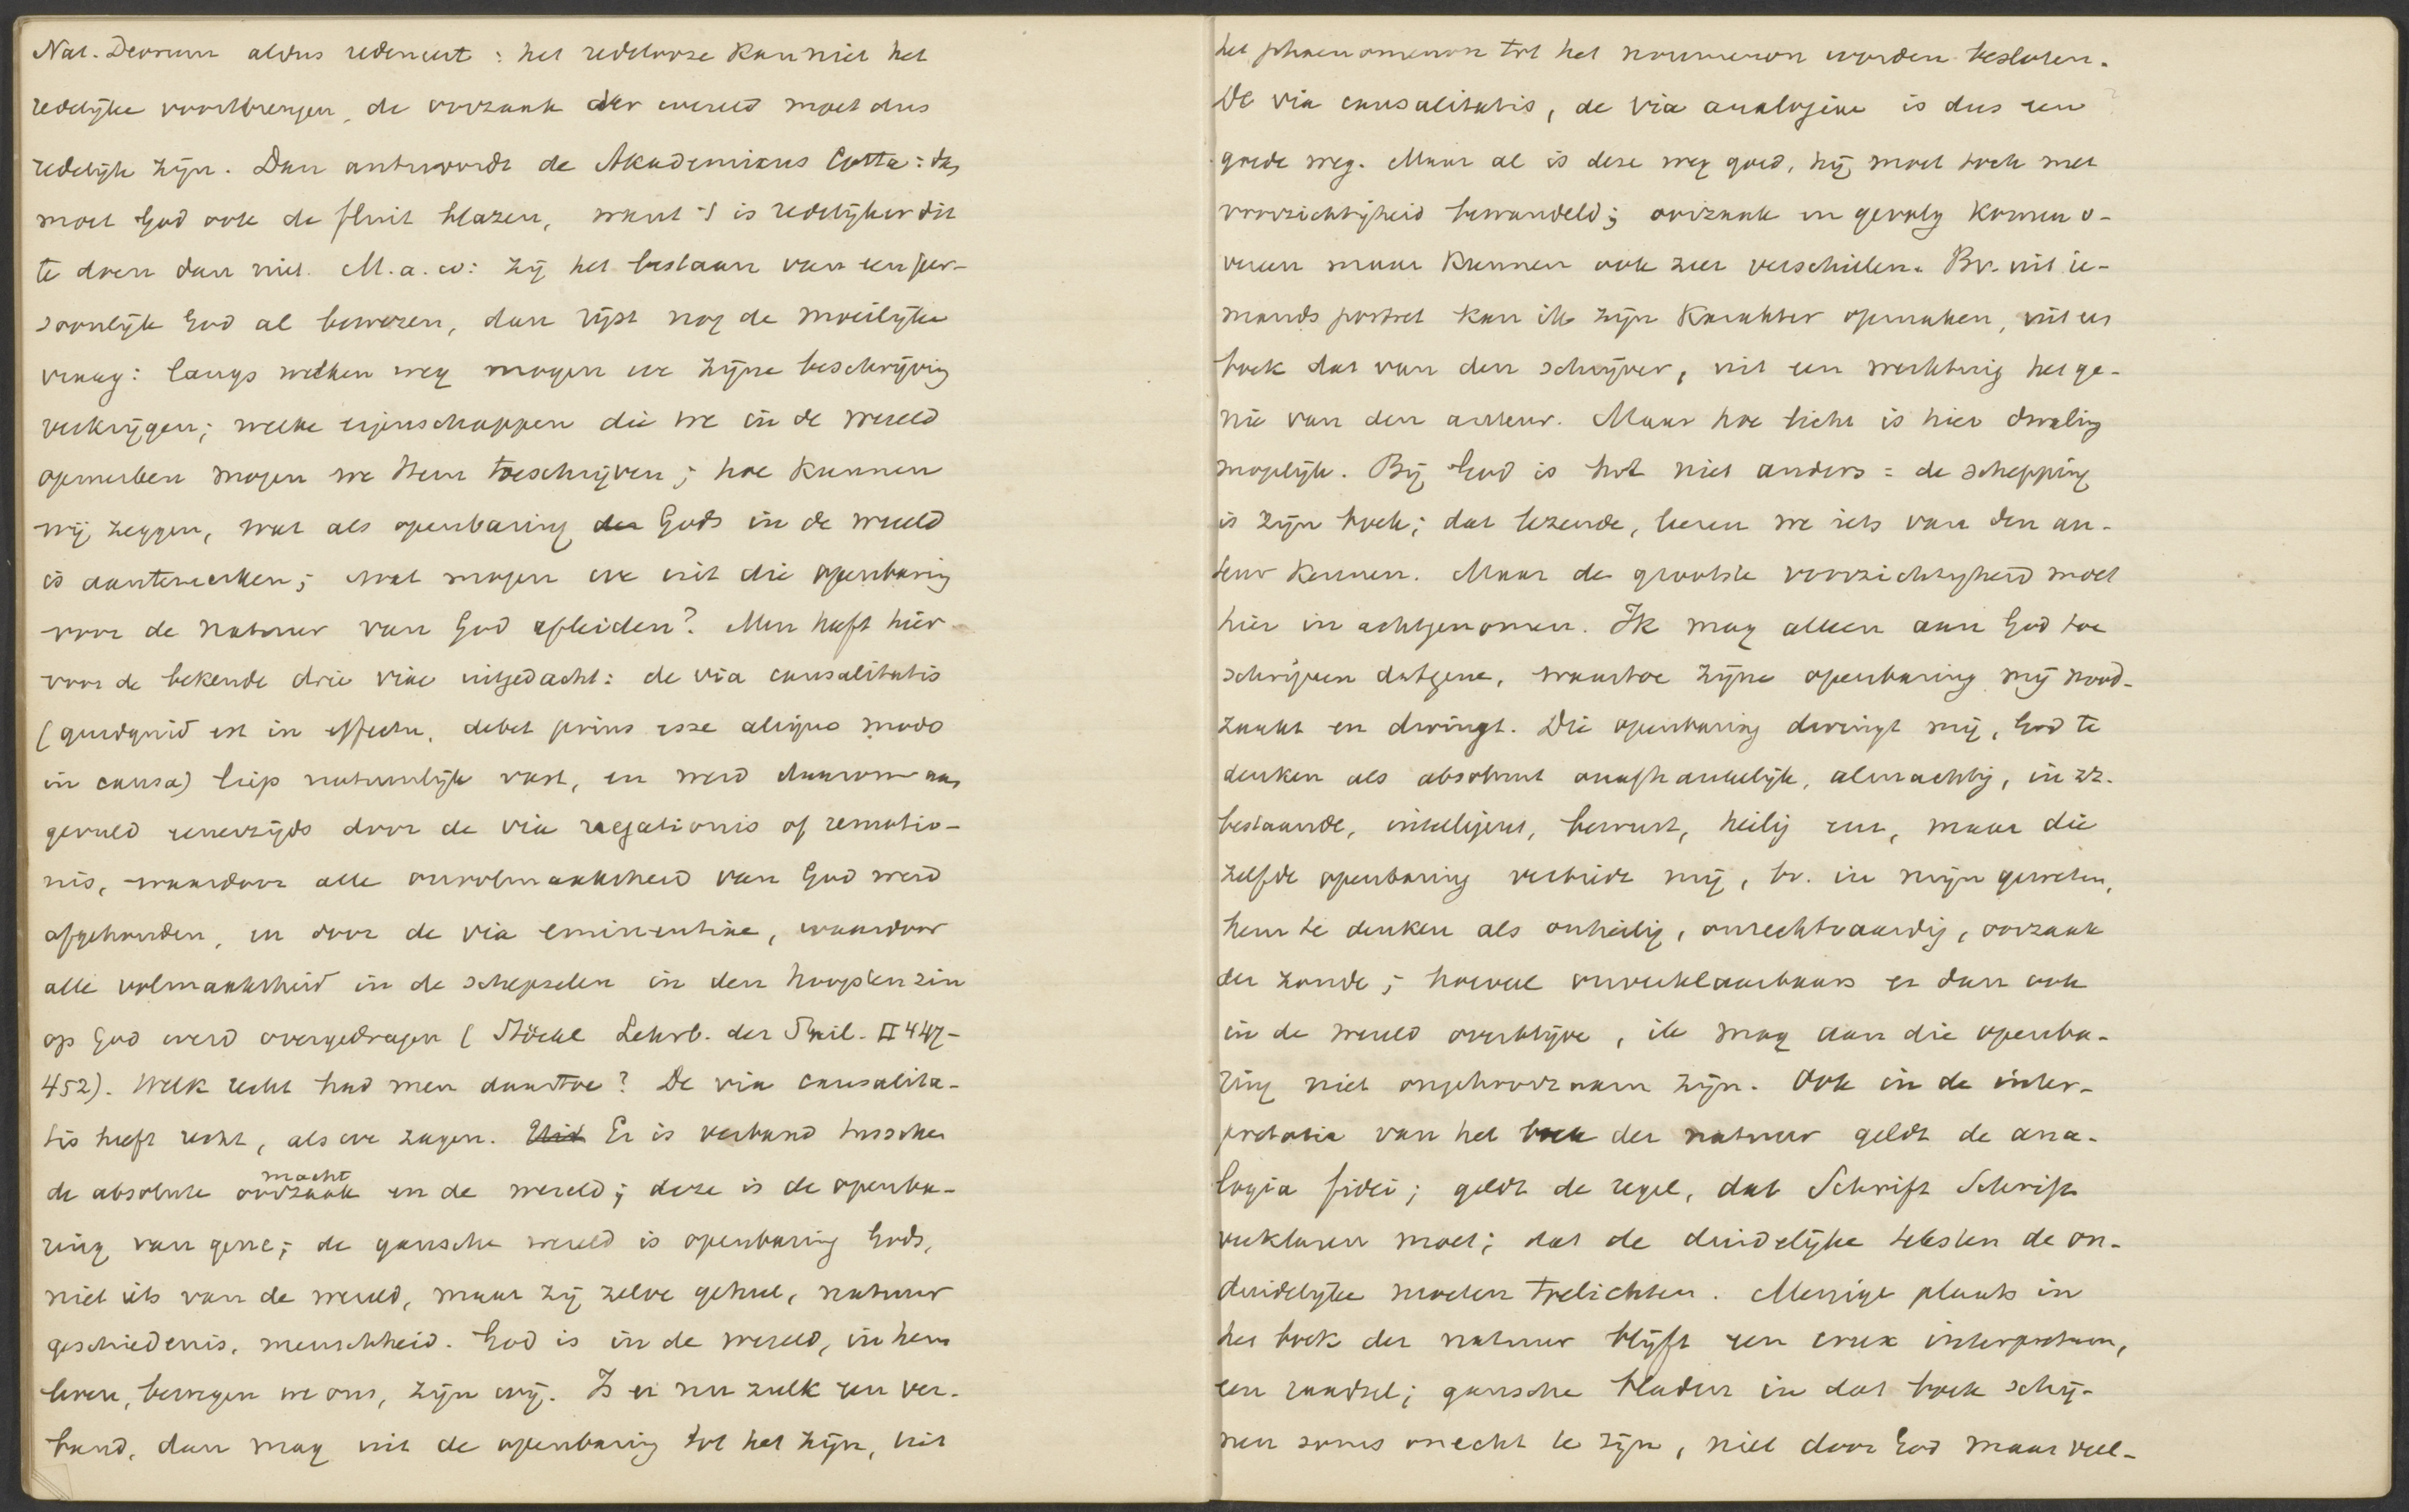 Nat. Deorum aldus redeneert: het redelooze kan niet het
redelijke voortbrengen, de oorzaak der wereld moet dus
redelijk zijn. Dan antwoordt de Akademikus Cotta: dan
moet God ook de fluit blazen, want 't is redelijker dit
te doen dan niet. M. a. w: zij het bestaan van een per-
soonlijk God al bewezen, dan rijst nog de moeilijke
vraag: langs welken weg mogen we zijne beschrijving
verkrijgen; welke eigenschappen die we in de wereld
opmerken mogen we Hem toeschrijven; hoe kunnen
wij zeggen, wat als openbaring der Gods in de wereld
is aantemerken; wat mogen we uit die openbaring
voor de natuur van God afleiden? Men heeft hier-
voor de bekende drie viae uitgedacht: de via causalitatis
(quidquid est in effectu, debet prius esse aliquo modo
in causa) liep natuurlijk vast, en werd daarom aan
gevuld eenerzijds door de via negationis of remotio-
nis, waardoor alle onvolmaaktheid van God werd
afgehouden, en door de via eminentiae, waardoor
alle volmaaktheid in de schepselen in den hoogsten zin
op God werd overgedragen (Stöckl Lehrb. der Phil. II 447-
452). Welk recht had men daartoe? De via causalita-
tis heeft recht, als we zagen. Er is verband tusschen
macht
de absolute oorzaak en de wereld; deze is de openba-
ring van gene; de gansche wereld is openbaring Gods,
niet iets van de wereld, maar zij zelve geheel, natuur
geschiedenis, menschheid. God is in de wereld, in hem
leven, bewegen we ons, zijn wij. Is er nu zulk een ver-
band, dan mag uit de openbaring tot het zijn, uit
het phaenomenon tot het noumenon worden besloten.
De via causalitatis, de via analogiae is dus een
goede weg. Maar al is deze weg goed, hij moet toch met
voorzichtigheid bewandeld; oorzaak en gevolg komen o-
vereen maar kunnen ook zeer verschillen. Bv. uit ie-
mands portret kan ik zijn karakter opmaken, uit een
boek dat van den schrijver, uit een werktuig het ge-
nie van den auteur. Maar hoe licht is hier dwaling
mogelijk. Bij God is het niet anders: de schepping
is zijn boek; dat lezende, leeren we iets van den au-
teur kennen. Maar de grootste voorzichtigheid moet
hier in achtgenomen. Ik mag alleen aan God toe
schrijven datgene, waartoe zijne openbaring mij nood-
zaakt en dwingt. Die openbaring dwingt mij, God te
denken als absoluut onafhankelijk, almachtig, in zz.
bestaande, intelligent, bewust, heilig enz, maar die
zelfde openbaring verbiedt mij, bv. in mijn geweten,
hem te denken als onheilig, onrechtvaardig, oorzaak
der zonde; hoeveel onverklaarbaars er dan ook
in de wereld overblijve, ik mag aan die openba-
ring niet ongehoorzaam zijn. Ook in de inter-
pretatie van het boek der natuur geldt de ana-
logia fidei; geldt de regel, dat Schrift Schrift
verklaren moet; dat de duidelijke teksten de on-
duidelijke moeten toelichten. Menige plaats in
het boek der natuur blijft een crux interpretum,
een raadsel; gansche bladen in dat boek schij-
nen soms onecht te zijn, niet door God maar veel-